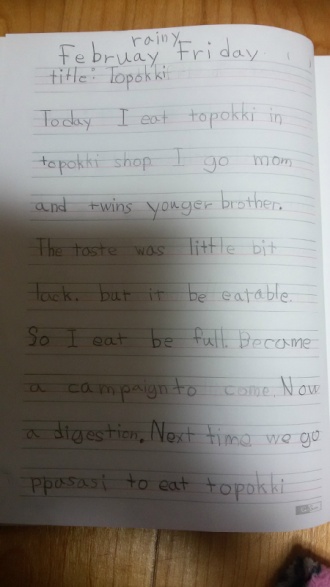 rainy
Februay Friday
title: Topokki
Today I eat topokki in
topokki shop I go mom
and twins younger brother.
The taste was little bit
lack. but it be eatable.
So I eat be full. Became
a campaign to come. Now
a digestion. Next time we go
ppasasi to eat topokki